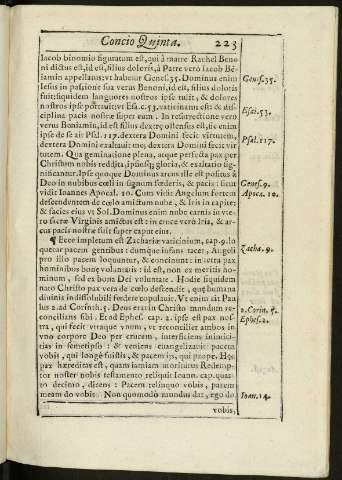 Concio Quinta. 223
Iacob binomio figuratum est, qui à matre Rachel Beno
ni dictus est, id est, filius doloris, à Patre verò Iacob Bē-
iamin appellatus: vt habetur Genes. 35. Dominus enim
Iesus in passione sua verus Benoni, id est, filius doloris
fuit: siquidem languores nostros ipse tulit, & dolores
nostros ipse portauit: vt Esa. c. 53. vaticinatū est: & dis-
ciplina pacis nostræ super eum. In resurrectione verò
verus Beniamin, id est filius dexteræ ostensus est, sic enim
ipse de se ait Psal. 117. dextera Domini fecit virtutem,
dextera Domini exaltauit me, dextera Domini fecit vir
tutem. Qua geminatione plena, atque perfecta pax per
Christum nobis reddita, ipsiusq; gloria, & exaltatio sig-
nificantur. Ipse quoque Dominus arcus ille est positus à
Deo in nubibus cœli in signum fœderis, & pacis: sicut
vidit Ioannes Apocal. 10. Cum vidit Angelum fortem
descendentem de cœlo amictum nube, & Iris in capite:
& facies eius vt Sol. Dominus enim nube carnis in vte-
ro sacræ Virginis amictus est: in cruce verò Iris, & ar-
cus pacis nostræ fuit super caput eius.
¶ Ecce impletum est Zachariæ vaticinium, cap. 9. lo
quetur pacem gentibus: dumque infans tacet, Angeli
pro illo pacem loquuntur, & concinunt: in terra pax
hominibus bonę voluntatis: id est, non ex meritis ho-
minum, sed ex bona Dei voluntate. Hodie siquidem
nato Christo pax vera de cœlo descendit, quę humana
diuinis indissolubili fœdere copulauit. Vt enim ait Pau
lus 2. ad Corinth. 5. Deus erat in Christo mundum re-
concilians sibi. Et ad Ephes. cap. 2. ipse est pax nos-
tra, qui fecit vtraque vnum, vt reconciliet ambos in
vno corpore Deo per crucem, interficiens inimici-
tias in semetipso: & veniens euangelizauit pacem
vobis, qui longè fuistis, & pacem ijs, qui prope. Hęc
pax hæreditas est, quam iamiam moriturus Redemp-
tor noster nobis testamento reliquit Ioann. cap. quar-
to decimo, dicens: Pacem relinquo vobis, pacem
meam do vobis. Non quomodo mundus dat, ego do
vobis,
Genes. 35.
Esai. 53.
Psal. 117.
Genes. 9.
Apoca. 10.
Zacha. 9.
2. Corin. 5.
Ephes. 2.
Ioan. 14.